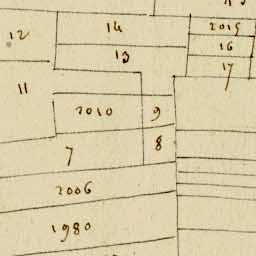 14
2015
12
16
13
17
11
2010
9
8
7
2006
1980